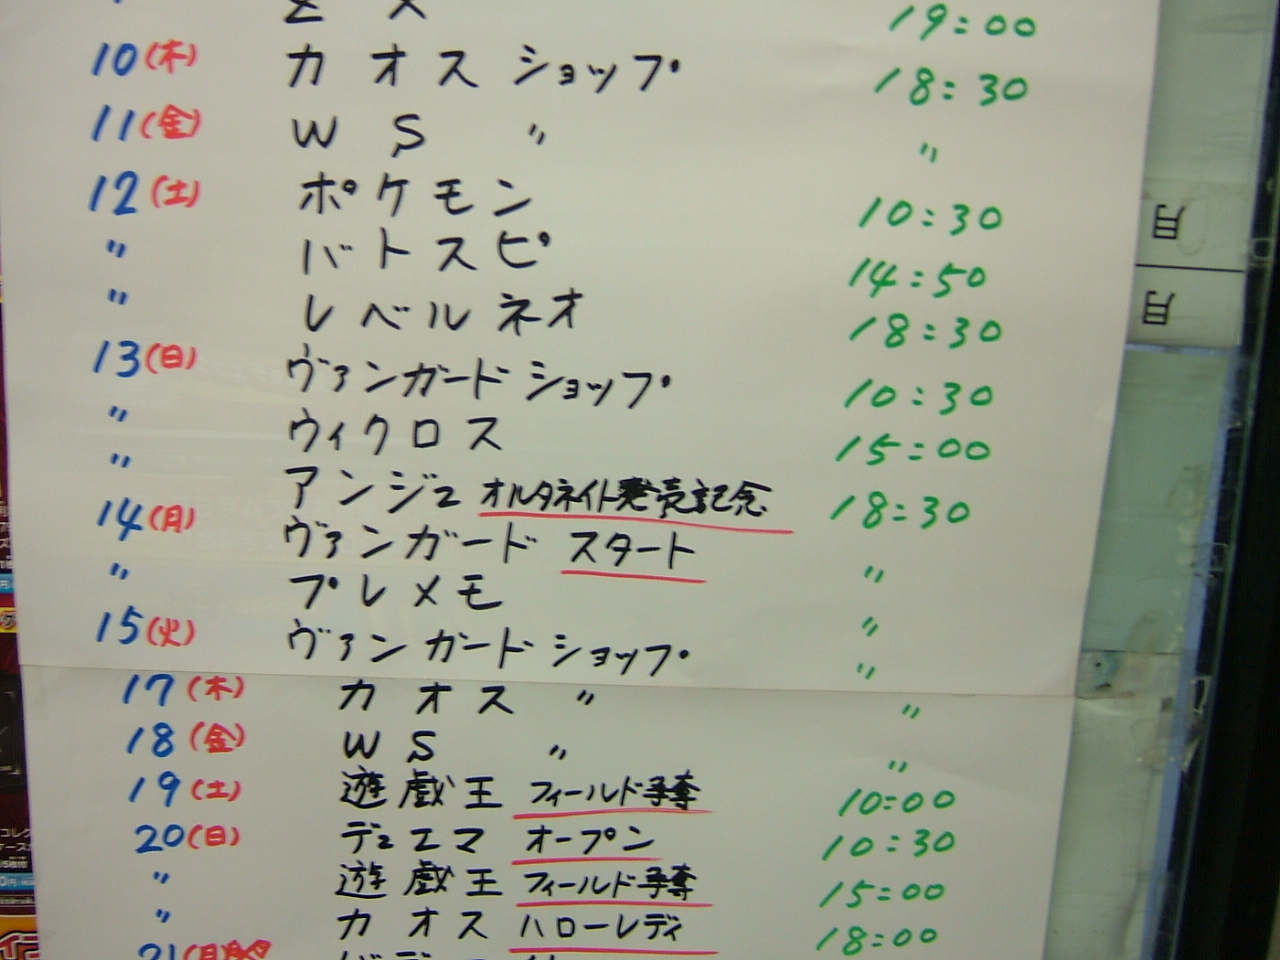 Z X 19:00
10(木) カオス ショップ 18:30
11(金) WS 〃 〃
12(土) ポケモン 10:30
〃 バトスピ 14:50
〃 レベルネオ 18:30
13(日) ヴァンガード ショップ 10:30
〃 ウィクロス 15:00
〃 アンジュ オルタネイト発売記念 18:30
14(月) ヴァンガード スタート 〃
〃 プレメモ 〃
15(火) ヴァンガード ショップ 〃
17(木) カオス 〃 〃
18(金) WS 〃 〃
19(土) 遊戯王 フィールド争奪 10:00
20(日) デュエマ オープン 10:30
〃 遊戯王 フィールド争奪 15:00
〃 カオス ハローレディ 18:00
21(月)
月
月